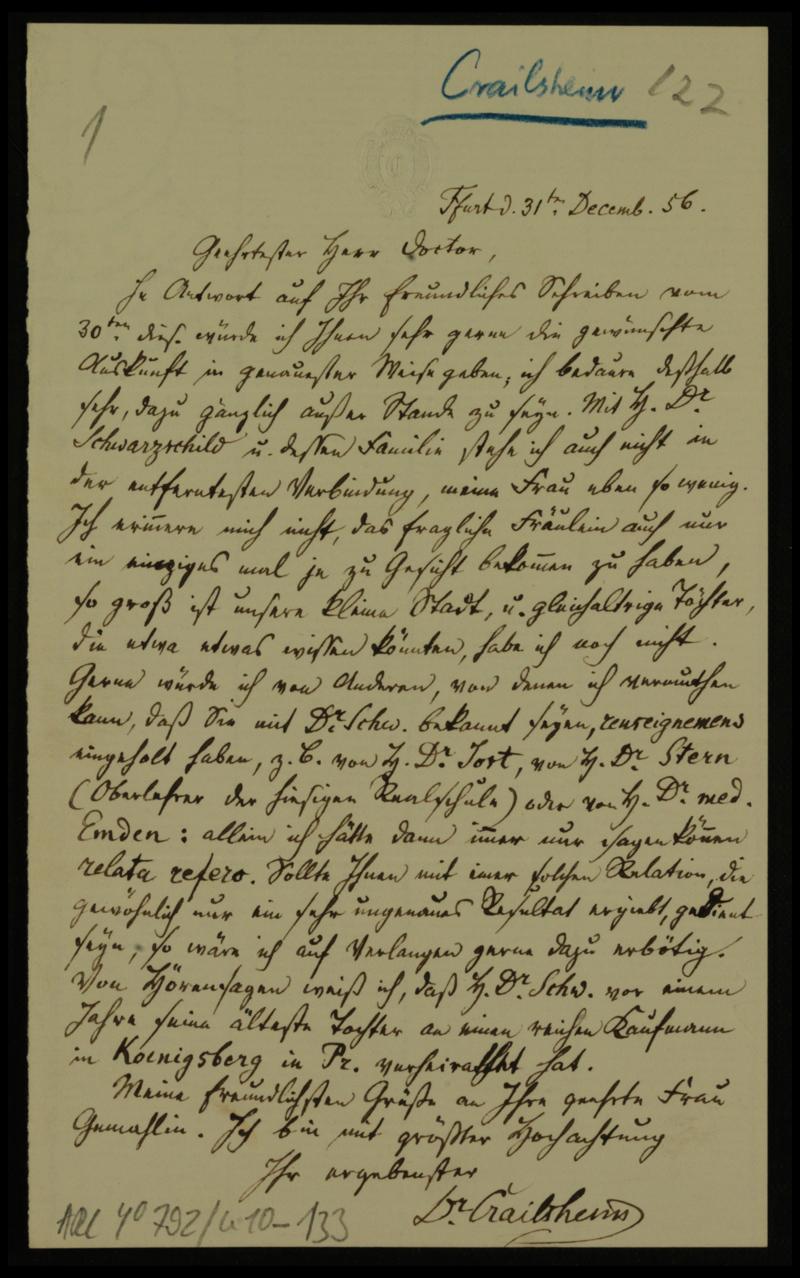 Crailsheim 122
1
Ffurt d. 31ten Decemb. 56.
Geehrtester Herr Doctor,
In Antwort auf Ihr freundliches Schreiben vom
30ten dies. würde ich Ihnen sehr gerne die gewünschte
Auskunft in genauester Weise geben; ich bedaure deßhalb
sehr, dazu gänzlich außer Stande zu seyn. Mit H. Dr.
Schwarzschild u. dessen Familie stehe ich auch nicht in
der entferntesten Verbindung, meine Frau eben so wenig.
Ich erinnere mich nicht, das fragliche Fräulein auch nur
ein einziges mal je zu Gesicht bekommen zu haben,
so groß ist unsere kleine Stadt, u. gleichaltrige Töchter,
die etwa etwas wissen könnten, habe ich noch nicht.
Gerne würde ich von Anderen, von denen ich vermuthen
kann, daß Sie mit Dr. Schw. bekannt seyen, renseignemens
eingeholt haben, z. B. von H. Dr. Jost, von H. Dr. Stern
(Oberlehrer der hiesigen Realschule) oder von H. Dr. med.
Emden: allein ich hätte dann immer nur sagen können
relata refero. Sollte Ihnen mit einer solchen Relation, die
gewöhnlich nur ein sehr ungenaues Resultat ergiebt, gedient
seyn, so wäre ich auf Verlangen gerne dazu erbötig.
Von Hörensagen weiß ich, daß H. Dr. Schw. vor einem
Jahre seine älteste Tochter an einen reichen Kaufmann
in Koenigsberg in Pr. verheirathet hat.
Meine freundlichsten Grüße an Ihre geehrte Frau
Gemahlin. Ich bin mit größter Hochachtung
Ihr ergebenster
Dr. Crailsheim
ARC 4° 792/ 10-133